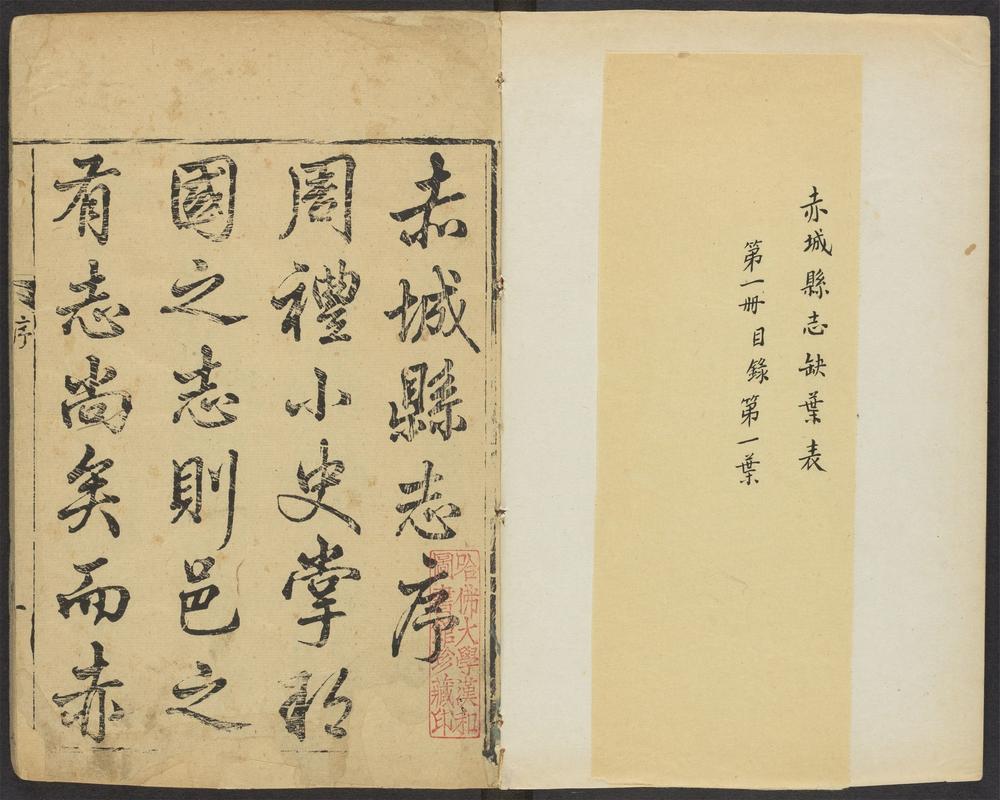 赤城縣志缺葉表
第一冊目錄第一葉
赤城縣志序
周禮小史掌邦
國之志則邑之
有志尚矣而赤
序
哈佛大學漢和
圖書館珍藏印